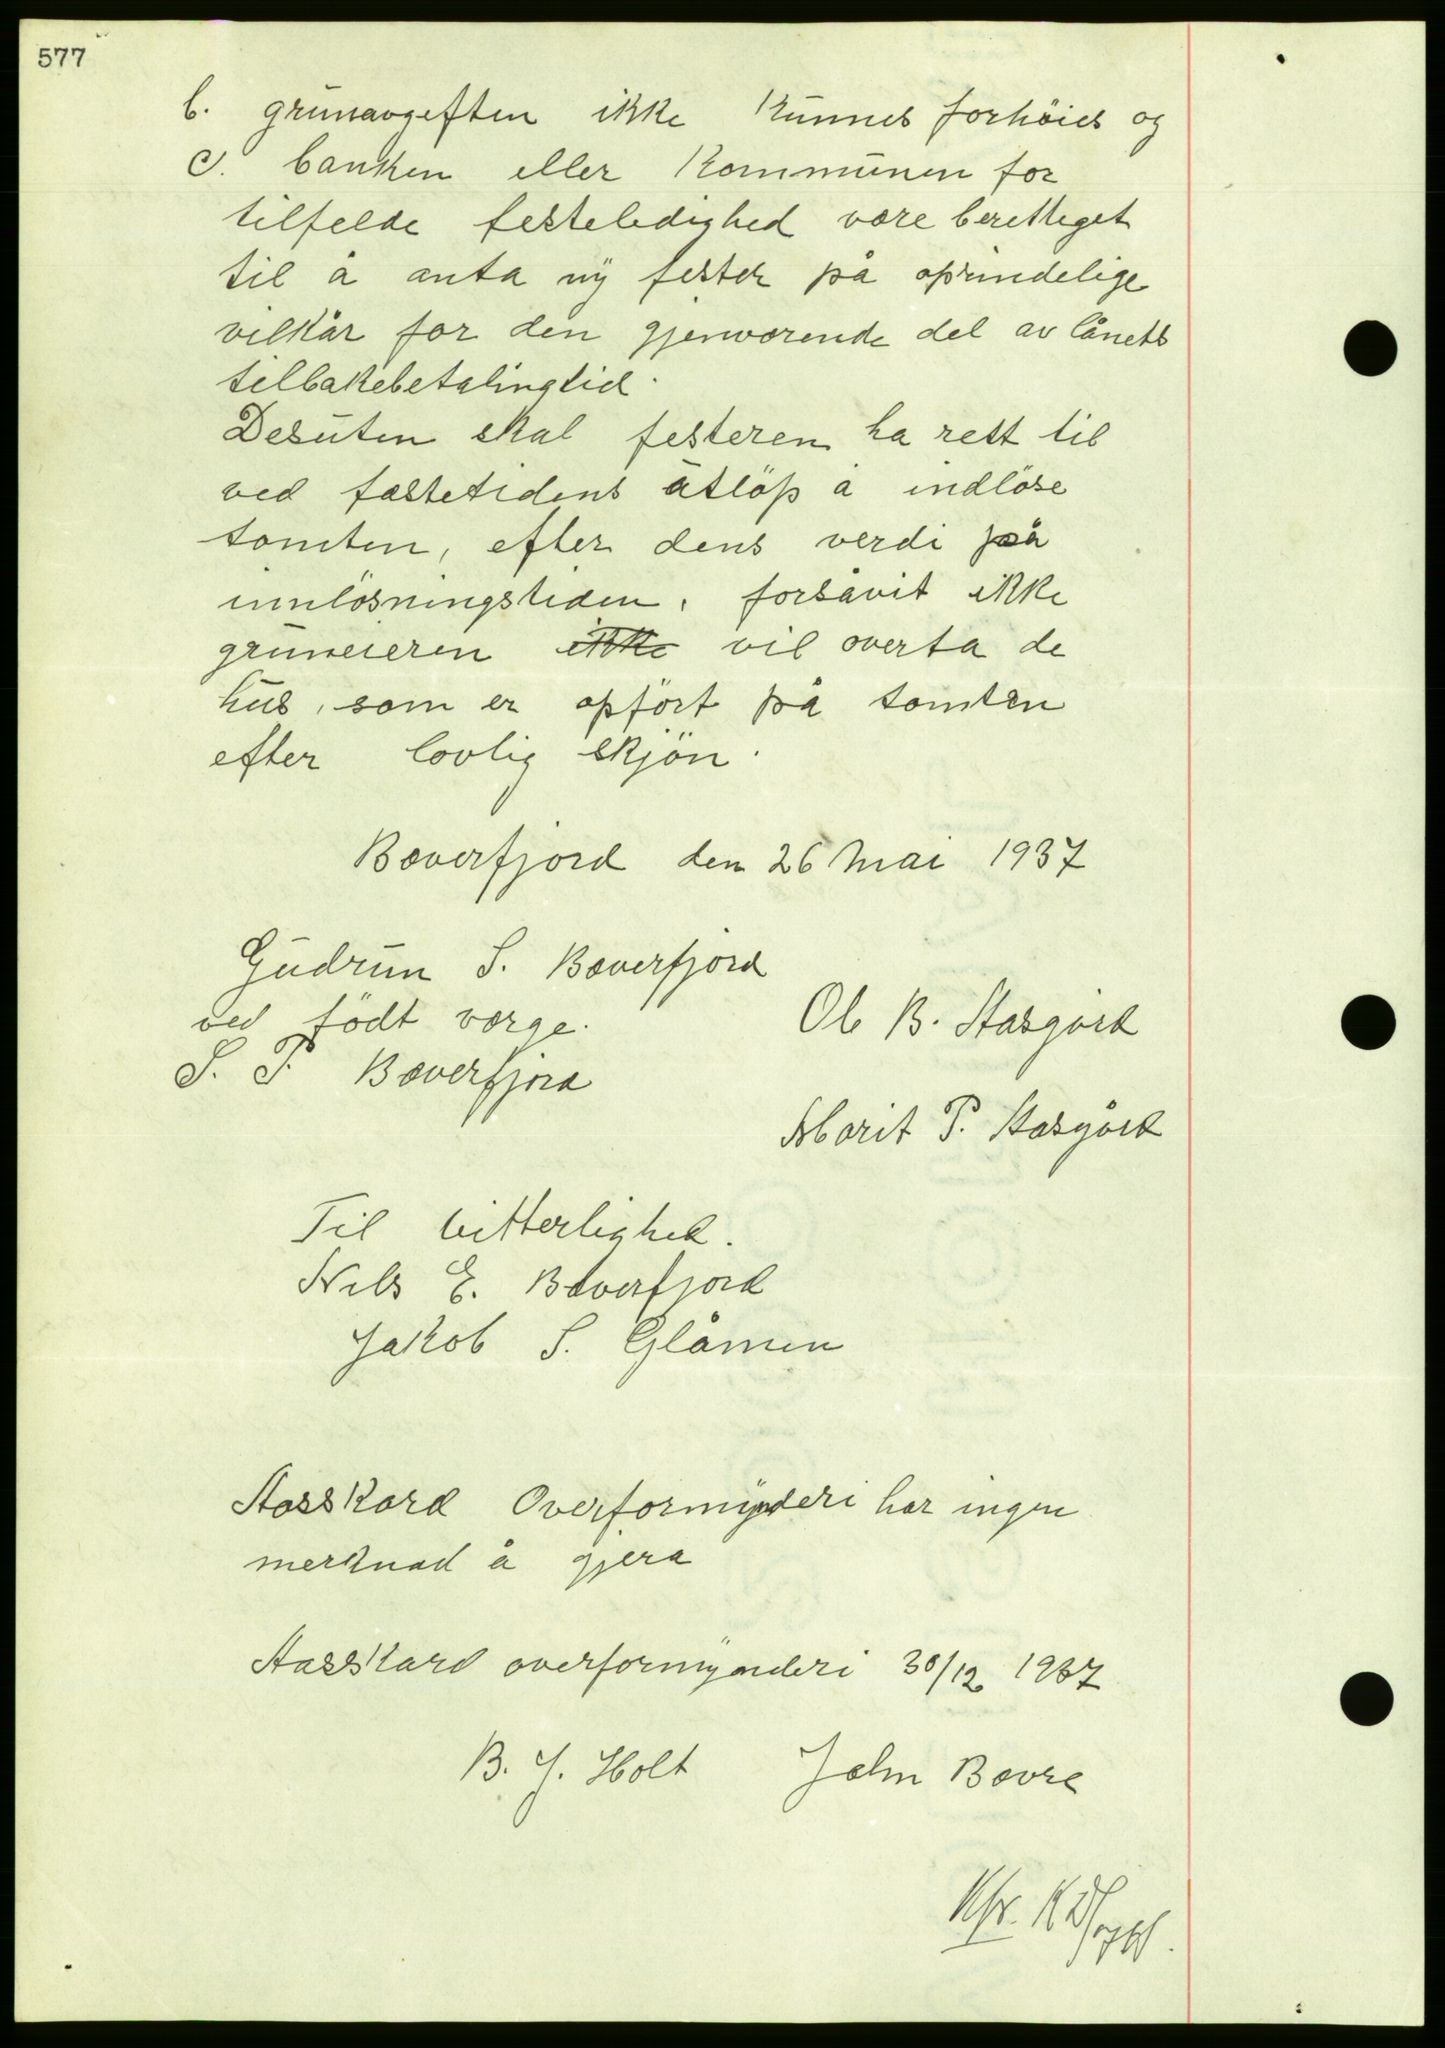 577
b. grunavgeften ikke kunnes forhöies og
c. banken eller kommunen for
tilfelde festeledighed være berettiget
til å anta ny fester på oprindelige
vilkår for den gjenværende del av lånets
tilbakebetalingtid.
Desuten skal festeren ha rett til
ved fæstetidens utlöp å indlöse
tomten, efter dens verdi på
innlösningstiden, forsåvit ikke
gruneieren ikke vil overta de
hus, som er opfört på tomten
efter lovlig skjön.
Bæverfjord den 26 Mai 1937
Gudrun S. Bæverfjord
ved födt verge.
S. P. Bæverfjord
Ole B. Stasgård
Marit P. Stasgård
Til vitterlighed.
Nils E. Bæverfjord
Jakob S. Glåmen
Stasskard Overformynderi har ingen
merknad å gjera
Aasskard overformynderi 30/12 1937
B. J. Holt John Bævre